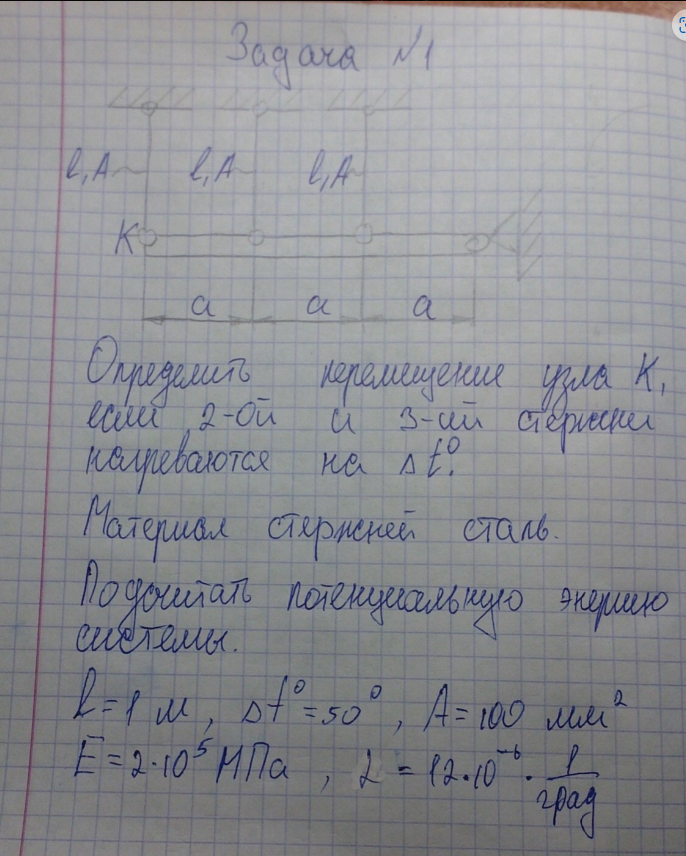 Задача №1
l,A l,A l,A
K
a a a
Определить перемещение узла К,
если 2-ой и 3-ий стержни
нагреваются на Δt°.
Материал стержней сталь.
Подсчитать потенциальную энергию
системы.
l=1 м, Δt°=50°, A=100 мм²
E=2·10⁵ МПа, α=12·10⁻⁶·1/град